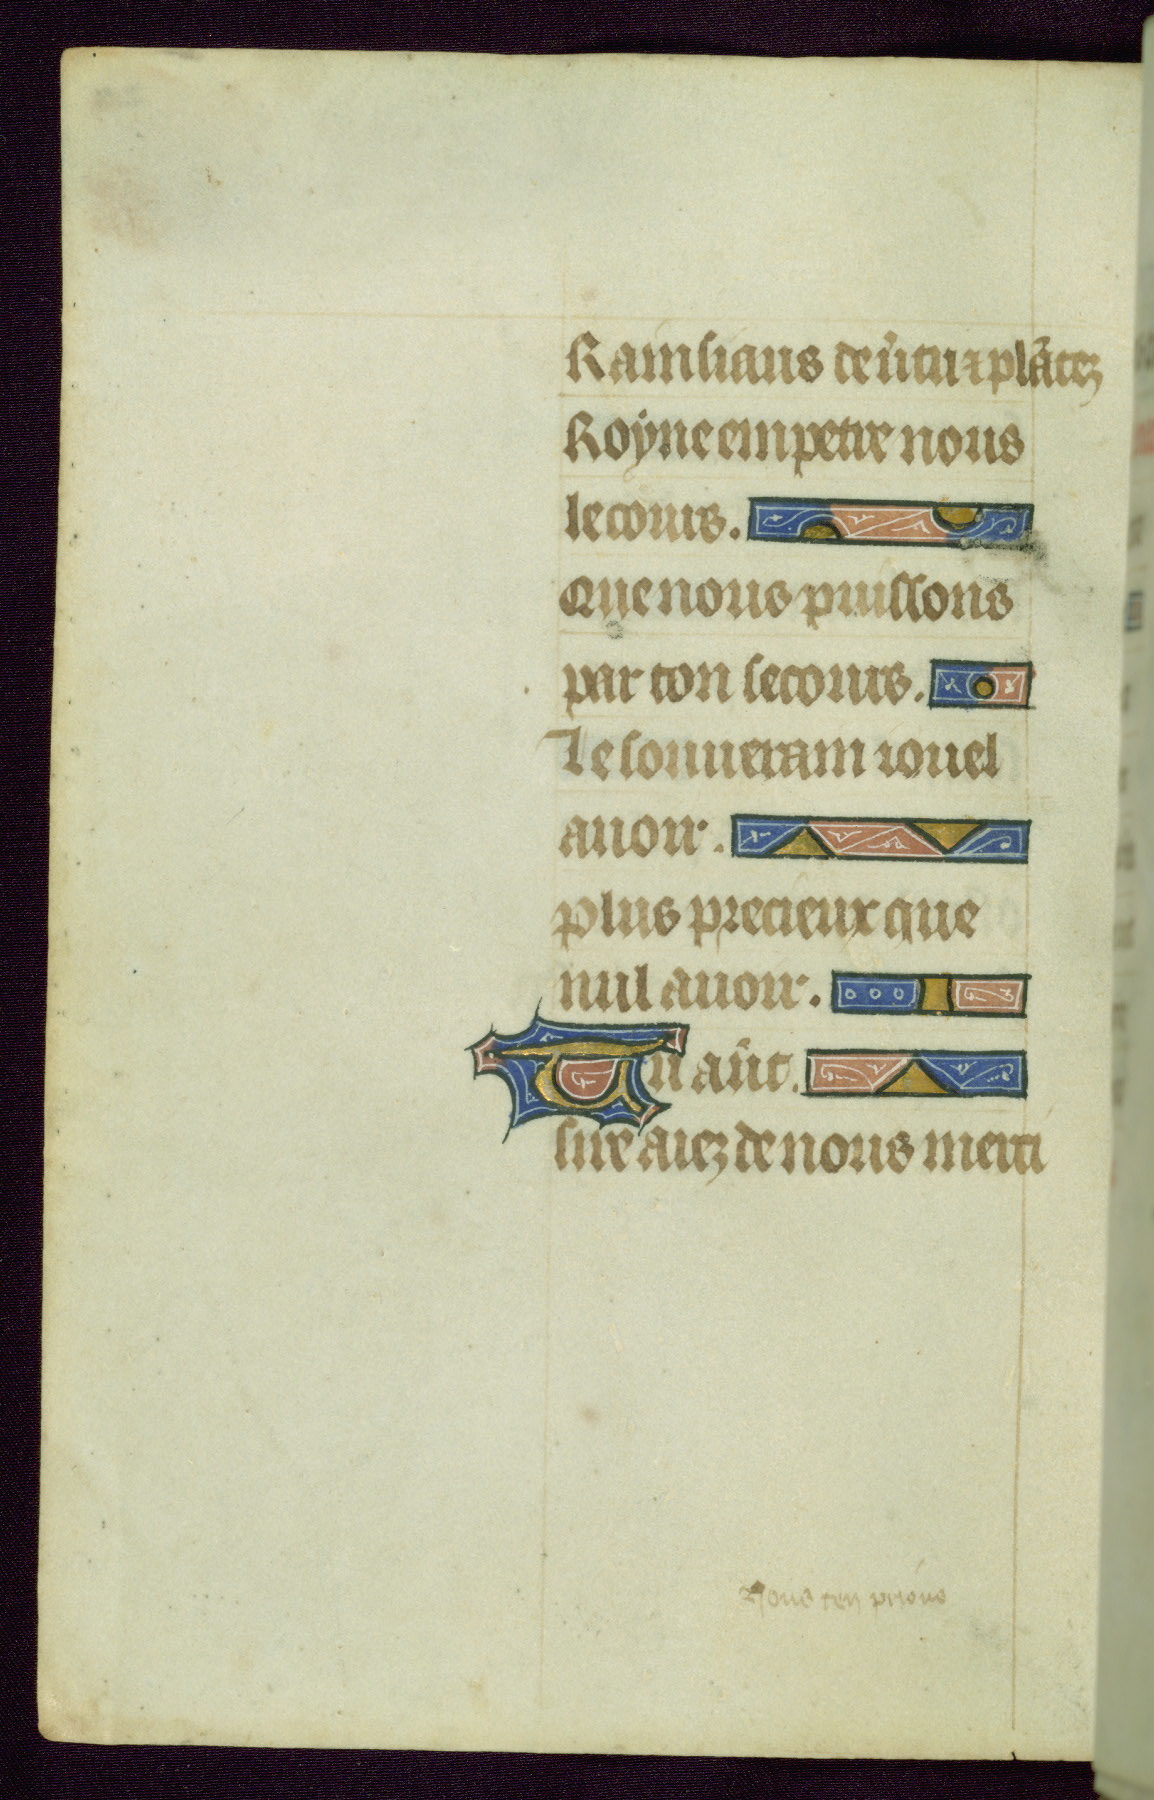 Rainsiaus de ṽtu ⁊ plãtez
Royne empetre nous
le cours.
Que nous puissons
par ton secours.
Le souuerain iouel
auoir.
plus precieux que
nul auoir.
Un aũt.
sire aiez de nous merci
Nous ten prions